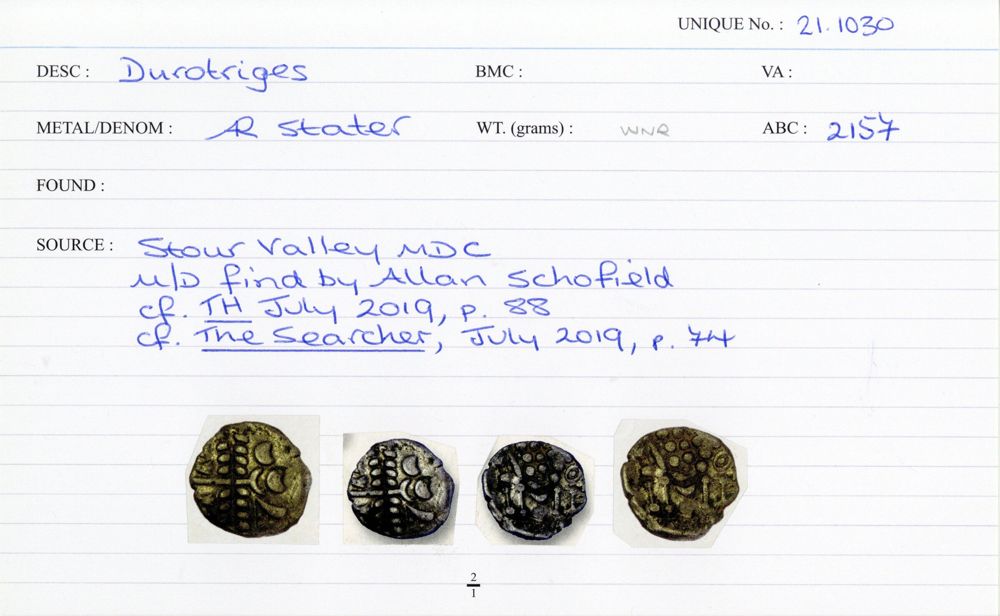 UNIQUE No. : 21.1030
DESC : Durotriges BMC : VA :
METAL/DENOM : AR Stater WT. (grams) : WNR ABC : 2157
FOUND :
SOURCE : Stour Valley MDC
M/D find by Allan Schofield
cf. TH July 2019, p. 88
cf. The Searcher, July 2019, p. 74
2
1